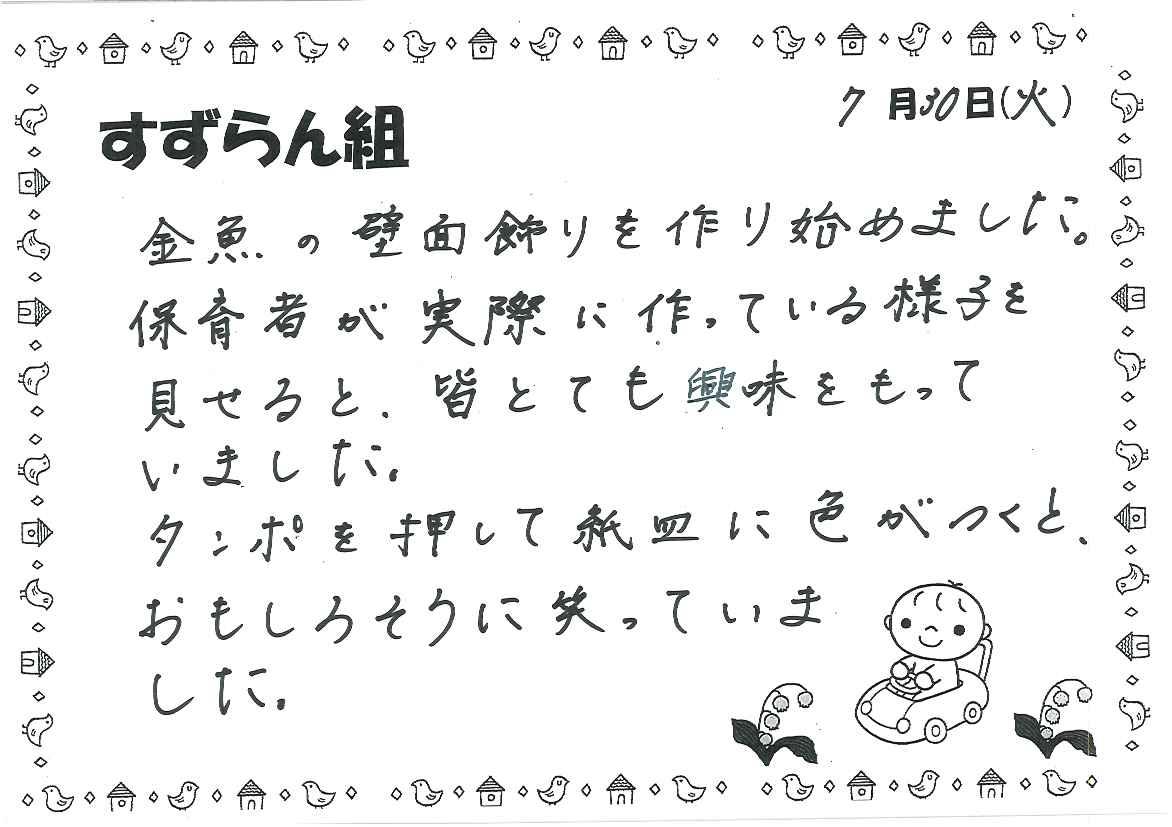 7月30日(火)
すずらん組
金魚の壁面飾りを作り始めました。
保育者が実際に作っている様子を
見せると、皆とても興味をもって
いました。
タンポを押して紙皿に色がつくと、
おもしろそうに笑っていま
した。